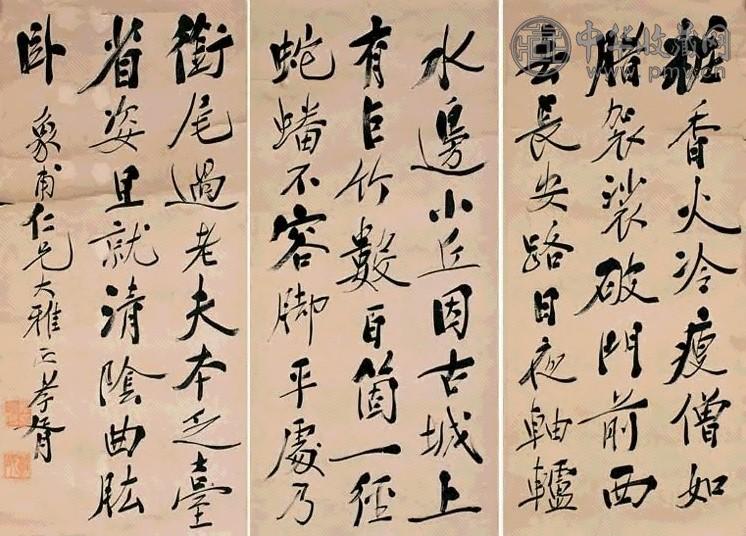 香火冷瘦僧如
腊袈裟破門前西
去長安路日夜軸轤
水邊小丘因古城上
有巨竹數百箇一徑
蛇蟠不容脚平處乃
銜尾過老夫本乏臺
省姿且就清陰曲肱
卧
象甫仁兄大雅正 孝胥
中华收藏网